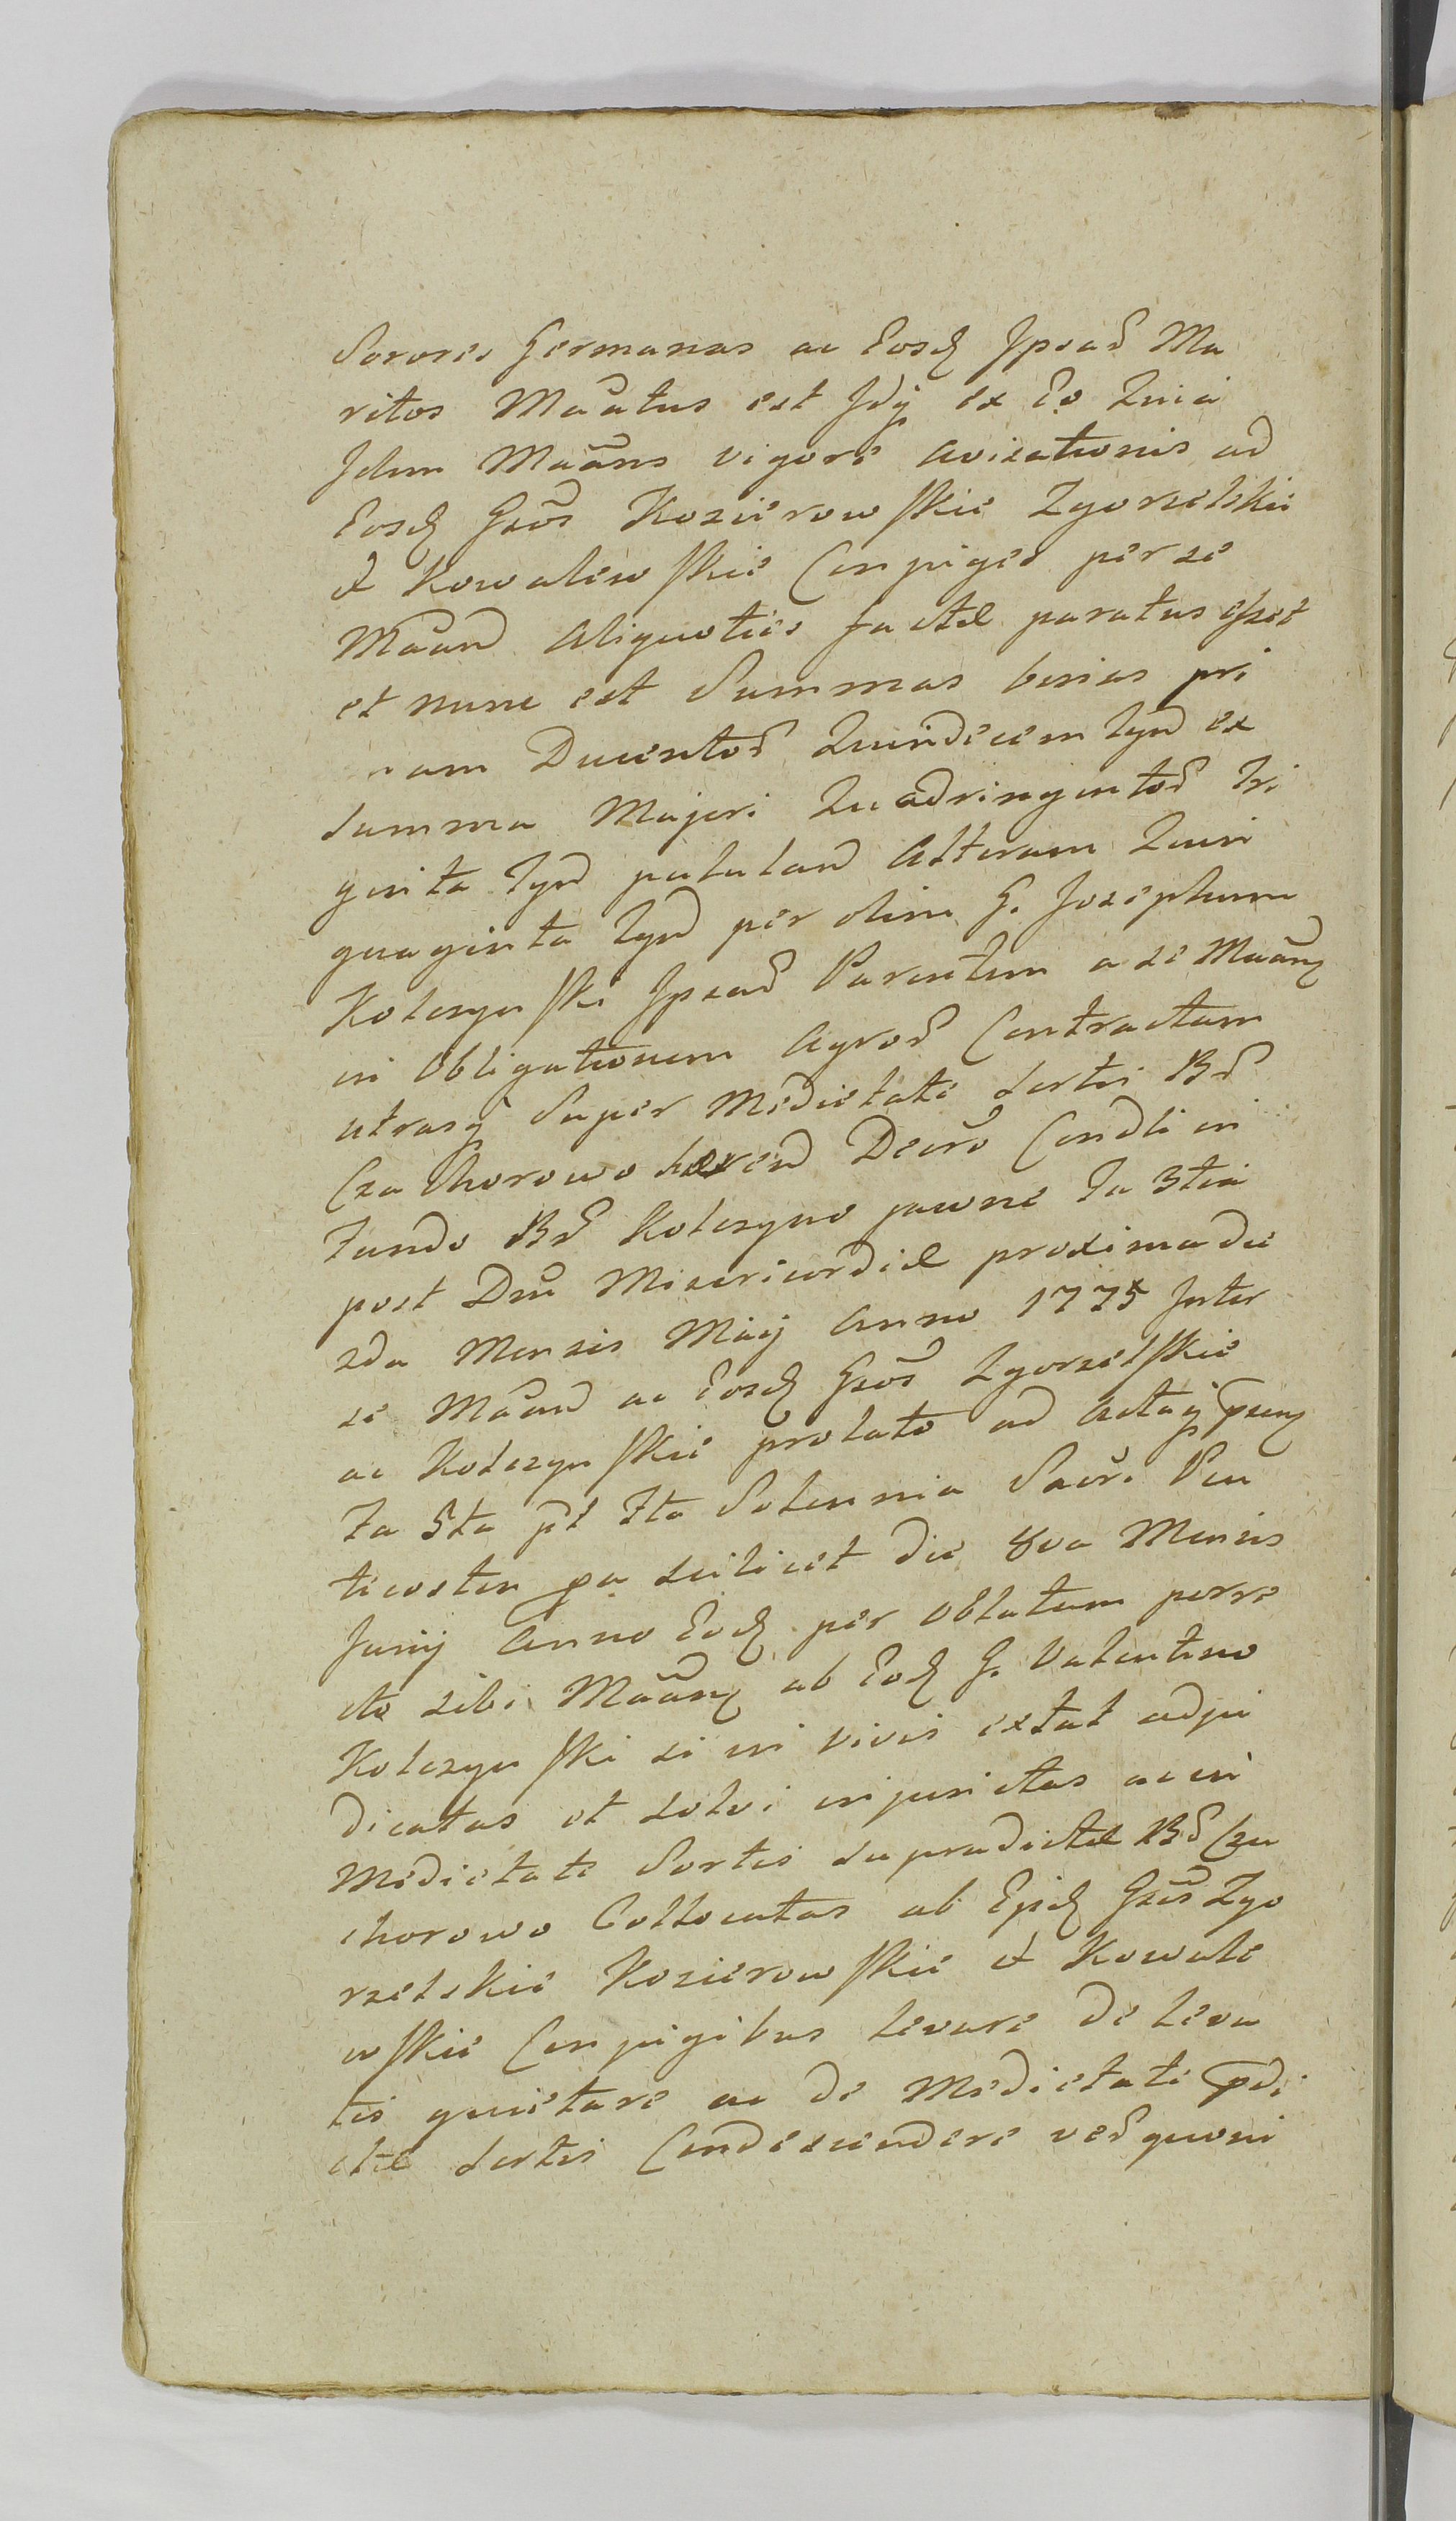 Sorores Germanas ac Eosq Ipsaꝝ Ma
ritos Maatus est Idq ex Eo Quia
Idem Maans vigore avisationis ad
Eosq Gsos Kosierowskie Zgorzelskie
et Kowalewskie Conjuges per se
Maand aliquoties factæ paratus esset
et nunc est Summas binas pri
mam Ducentoꝝ Quindecem tynd ex
Summa Majori Quadringentoꝝ Tri
ginta tynd patuland Alteram Quin
quaginta tynd per olim G. Josephum
Kolczynski Ipsaꝝ Parentem a se Maanq
in Obligationem Agroꝝ Contractam
utrasq Super Medietate Sortis Bꝝ
Czachorowo haerend Decro Condli in
fundo Bꝝ Kolczyno pawne Fa 3tia
post Dm Misericordiæ proxima die
2da Mensis Maij Anno 1775 Inter
se Maand ac Eosq Gsos Zgorzelskie
ac Kolczynskie prolato ad Actaq psenq
Fa 5ta pt Fta Solennia Sacri Pen
tecosten pa scilicet die 8va Mensis
Junij Anno Eodq per Oblatam porre
cto sibi Maanq ab Eodq G. Valentino
Kolczynski si in vivis extat adju
dicatas et Solvi injunctas ac in
Medietate Sortis supradictæ Bꝝ Cza
chorowo Collocatas ab Ejsdq Gsis Zgo
rzelskie Kosierowskie et Kowale
wskie Conjugibus levare de leva
tis quietare ac de Medietate pdi
ctæ Sortis Condescendere veꝝ quoni